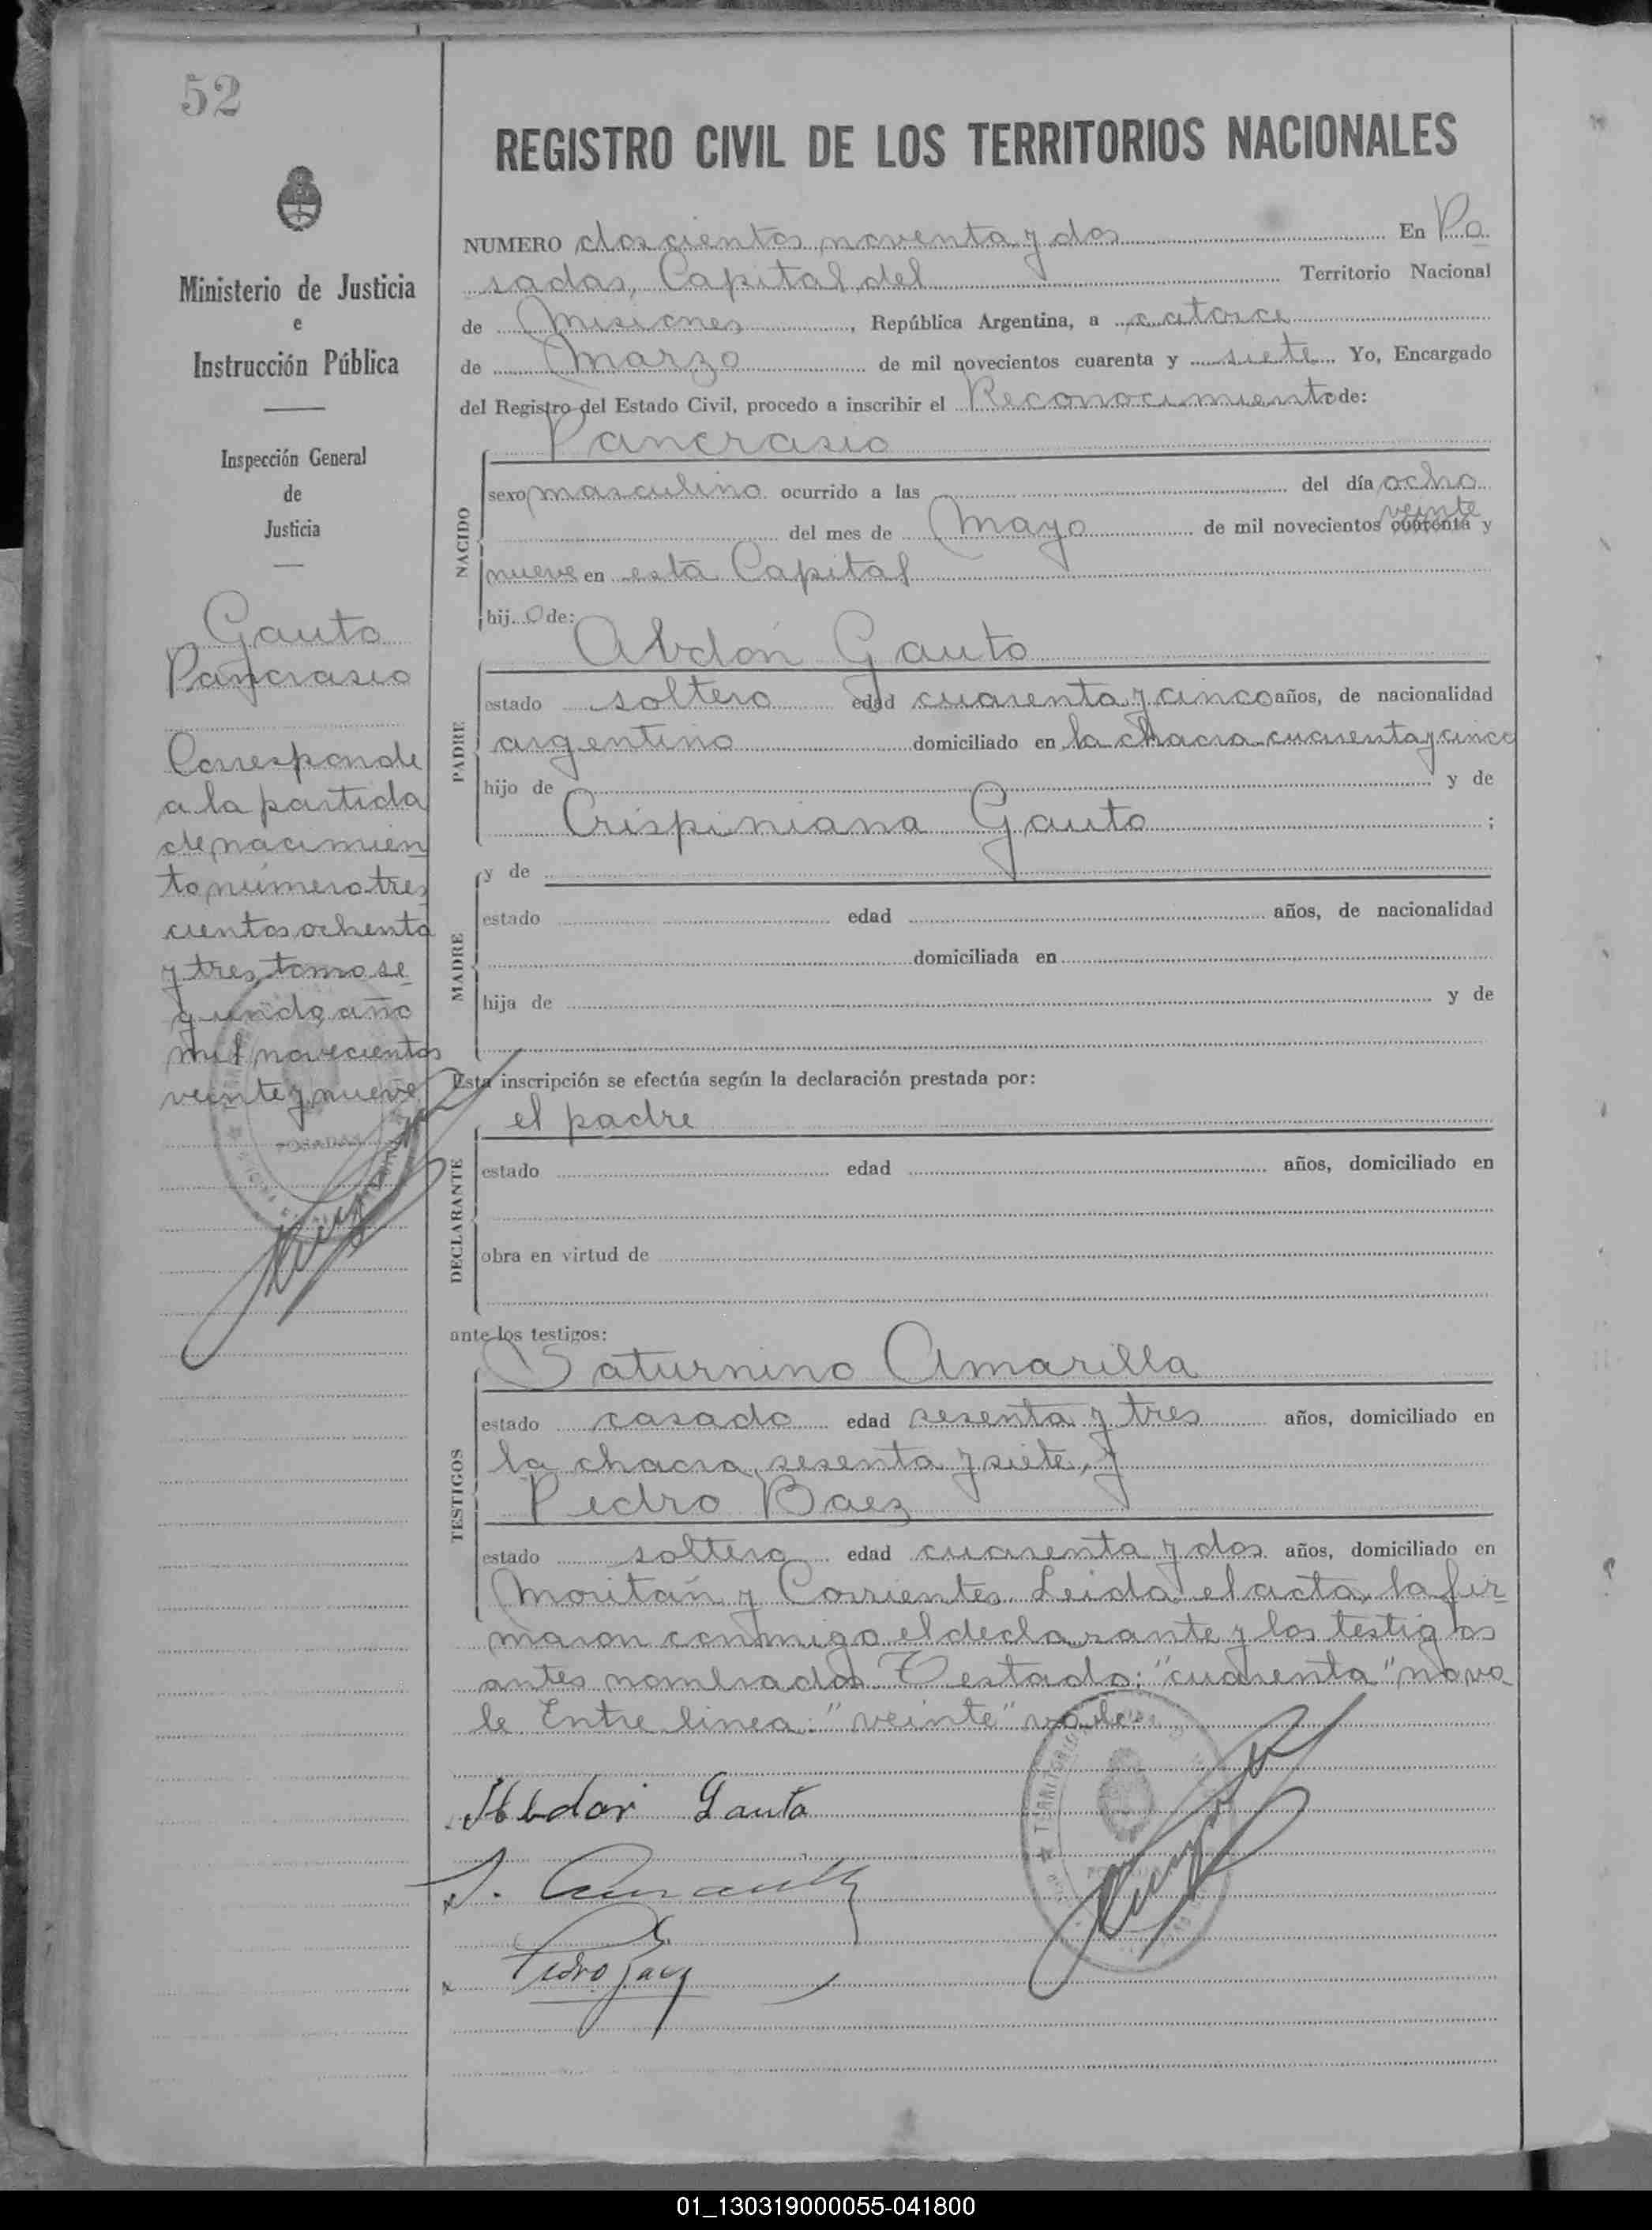 52
Ministerio de Justicia
e
Instrucción Pública
Inspección General
de
Justicia
Gauto
Pancrasio
Corresponde
a la partida
de nacimien
to número tres
cientos ochenta
y tres, tomo se
gundo, año
mil novecientos
veinte y nueve
POSADAS
REGISTRO CIVIL DE LOS TERRITORIOS NACIONALES
NUMERO doscientos noventa y dos En Po
sadas, Capital del Territorio Nacional
de Misiones, República Argentina, a catorce
de Marzo de mil novecientos cuarenta y siete Yo, Encargado
del Registro del Estado Civil, procedo a inscribir el Reconocimiento de:
Pancrasio
NACIDO
sexo masculino ocurrido a las del día ocho
veinte
del mes de Mayo de mil novecientos cuarenta y
nueve en esta Capital
hijo de:
Abdón Gauto
PADRE
estado soltero edad cuarenta y cinco años, de nacionalidad
argentino domiciliado en la chacra cuarenta y cinco
hijo de y de
Crispiniana Gauto ;
MADRE
y de
estado edad años, de nacionalidad
domiciliada en
hija de y de
Esta inscripción se efectúa según la declaración prestada por:
el padre
DECLARANTE
estado edad años, domiciliado en
obra en virtud de
ante los testigos:
Saturnino Amarilla
TESTIGOS
estado casado edad sesenta y tres años, domiciliado en
la chacra sesenta y siete, y
Pedro Baez
estado soltero edad cuarenta y dos años, domiciliado en
Moritán y Corrientes. Leida el acta, la fir
maron conmigo el declarante y los testigos
antes nombrados. Testado: "cuarenta" no va
le Entre linea: "veinte" vale.
Abdon Gauto
S. Amarilla
Pedro Baez
01_130319000055-041800